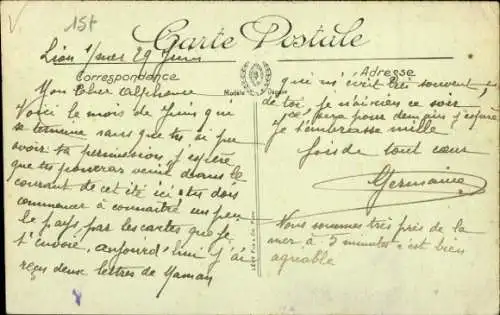 15t
Carte Postale
Lion s/mer 29 Juin
Correspondance
Mon cher Alphonse
Voici le mois de Juin qui
se termine sans que tu ai pu
avoir ta permission, j'espère
que tu pourras venir dans le
courant de cet été ici tu dois
commencer à connaître un peu
le pays, par les cartes que je
t'envoie, aujourd'hui j'ai
reçu deux lettres de Maman
Modèle Déposé
LEVY Fils & Cie, Paris
Adresse
qui m'écrit très souvent,
de toi je n'ai rien ce soir
ce sera pour demain j'espère
Je t'embrasse mille
fois de tout cœur
Germaine
Nous sommes très près de la
mer à 5 minutes c'est bien
agréable